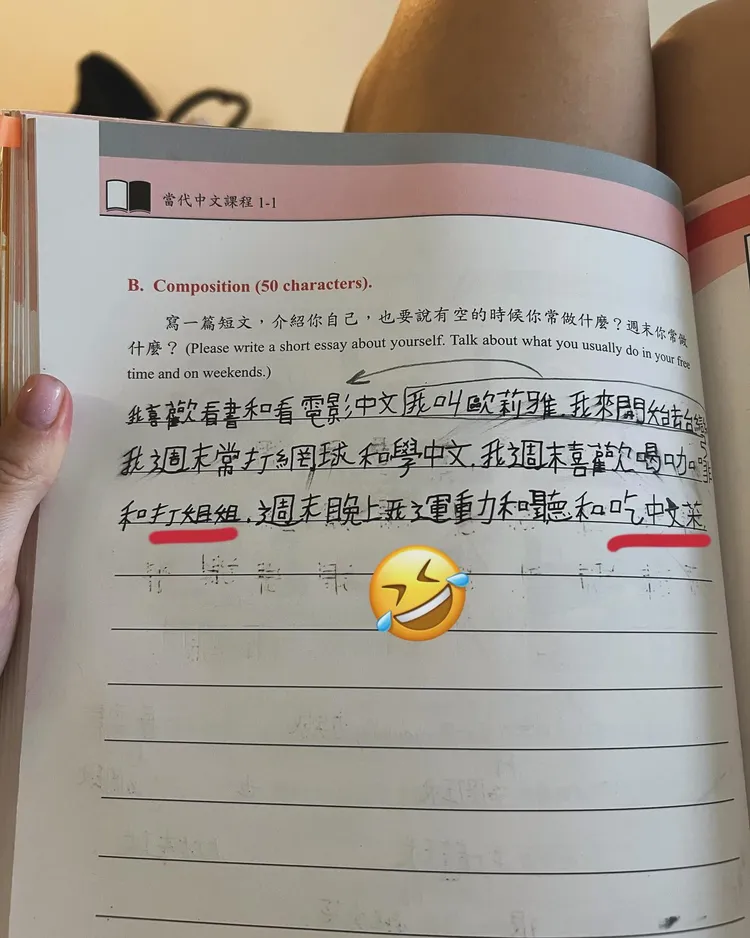 當代中文課程 1-1
B. Composition (50 characters).
寫一篇短文，介紹你自己，也要說有空的時候你常做什麼？週末你常做
什麼？ (Please write a short essay about yourself. Talk about what you usually do in your free
time and on weekends.)
我喜歡看書和看電影中文我叫歐莉雅.我來台
我週末常打網球和學中文.我週末喜歡喝咖啡
和打姐姐.週末晚上我運動和聽和吃中文菜.